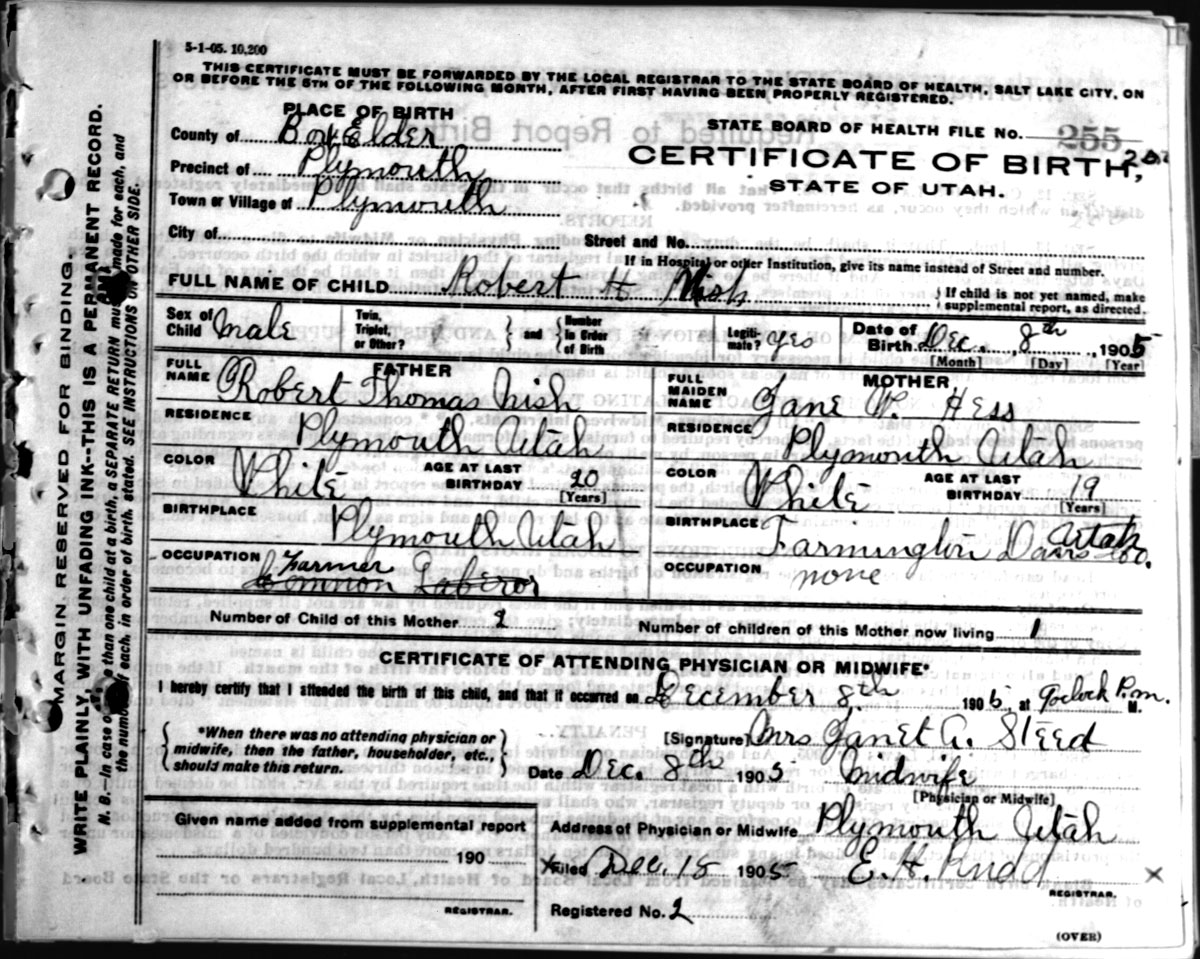 5-1-05. 10,200
THIS CERTIFICATE MUST BE FORWARDED BY THE LOCAL REGISTRAR TO THE STATE BOARD OF HEALTH, SALT LAKE CITY, ON
OR BEFORE THE 5TH OF THE FOLLOWING MONTH, AFTER FIRST HAVING BEEN PROPERLY REGISTERED.
PLACE OF BIRTH
County of Box Elder
STATE BOARD OF HEALTH FILE No. 255
Precinct of Plymouth
CERTIFICATE OF BIRTH,
Town or Village of Plymouth
STATE OF UTAH.
City of
Street and No.
If in Hospital or other Institution, give its name instead of Street and number.
FULL NAME OF CHILD Robert H Nish
} If child is not yet named, make
supplemental report, as directed.
Sex of Child Male
Twin, Triplet, or Other? } and { Number in Order of Birth
Legiti- mate? yes
Date of Birth Dec. 8th, 1905
[Month] [Day] [Year]
FATHER
FULL NAME Robert Thomas Nish
RESIDENCE Plymouth Utah
COLOR White
AGE AT LAST BIRTHDAY 20 [Years]
BIRTHPLACE Plymouth Utah
OCCUPATION Farmer
Common Laberor
MOTHER
FULL MAIDEN NAME Jane W. Hess
RESIDENCE Plymouth Utah
COLOR White
AGE AT LAST BIRTHDAY 19 [Years]
BIRTHPLACE Farmington Davis Co. Utah
OCCUPATION none
Number of Child of this Mother 2
Number of children of this Mother now living 1
CERTIFICATE OF ATTENDING PHYSICIAN OR MIDWIFE*
I hereby certify that I attended the birth of this child, and that it occurred on December 8th 1905, at 9 oclock P.m. M.
{ *When there was no attending physician or
midwife, then the father, householder, etc.,
should make this return. }
[Signature] Mrs Janet A. Steed
Date Dec. 8th 1905 Midwife
[Physician or Midwife]
Given name added from supplemental report
190
REGISTRAR.
Address of Physician or Midwife Plymouth Utah
Filed Dec. 15 1905 E. H. Rudd
REGISTRAR.
Registered No. 2
(OVER)
MARGIN RESERVED FOR BINDING.
WRITE PLAINLY, WITH UNFADING INK--THIS IS A PERMANENT RECORD.
N. B.—In case of more than one child at a birth, a SEPARATE RETURN must be made for each, and
the number of each, in order of birth, stated. SEE INSTRUCTIONS ON OTHER SIDE.